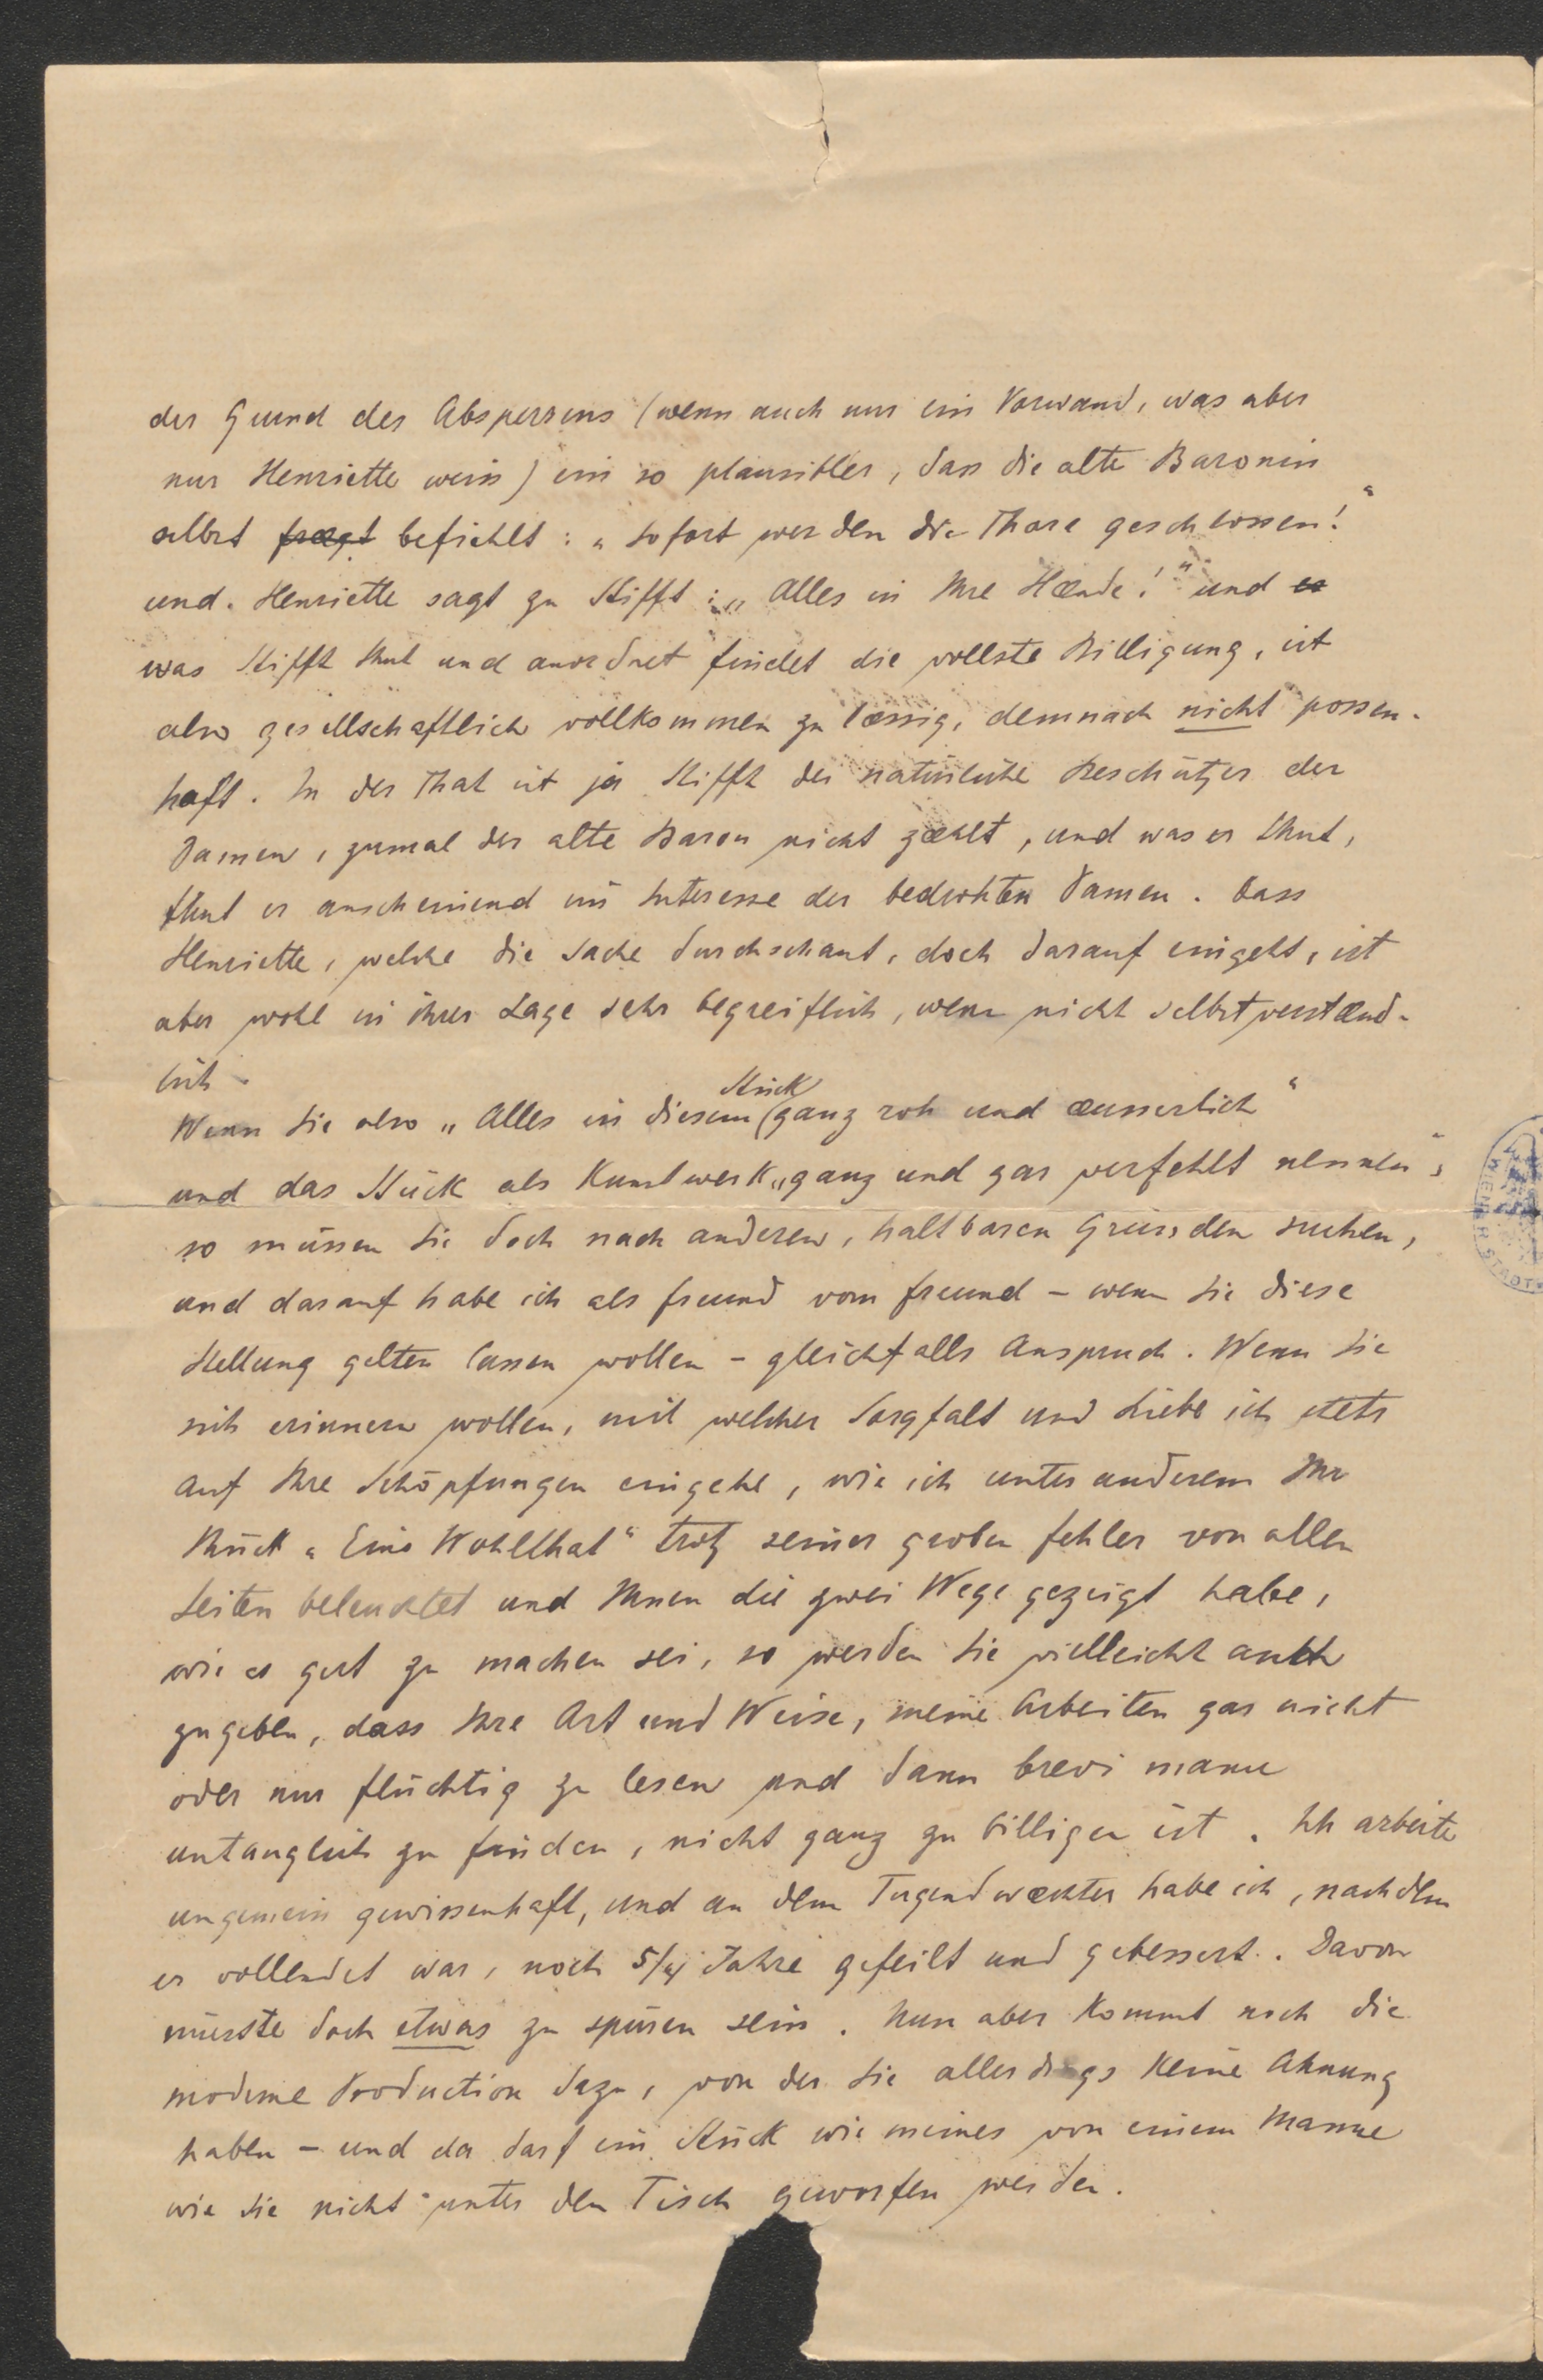 der Grund des Absperrens (wenn auch nur ein Vorwand, was aber
nur Henriette weiss) ein so plausibler, dass die alte Baronin
selbst fraegt befiehlt: „Sofort werden die Thore geschlossen!“
und Henriette sagt zu Stifft: „Alles in Ihre Hænde!“ und es
was Stifft thut und anordnet findet die vollste Billigung, ist
also gesellschaftlich vollkommen zu læssig, demnach nicht possen-
haft. In der That ist ja Stifft der natürliche Beschützer der
Damen, zumal der alte Baron nicht zæhlt, und was er thut,
thut er anscheinend im Interesse der bedrohten Damen. Dass
Henriette, welche die Sache durchschaut, doch darauf eingeht, ist
aber wohl in ihrer Lage sehr begreiflich, wenn nicht selbstverstænd-
lich.
Wenn Sie also „Alles in diesem Stück ganz roh und æusserlich“
und das Stück als Kunstwerk „ganz und gar verfehlt nennen“,
so müssen Sie doch nach anderen, haltbaren Gründen suchen,
und darauf habe ich als Freund vom Freund – wenn Sie diese
Stellung gelten lassen wollen – gleichfalls Anspruch. Wenn Sie
sich erinnern wollen, mit welcher Sorgfalt und Liebe ich stets
auf Ihre Schöpfungen eingehe, wie ich unter anderem Ihr
Stück „Eine Wohlthat“ trotz seiner groben Fehler von allen
Seiten beleuchtet und Ihnen die zwei Wege gezeigt habe,
wie es gut zu machen sei, so werden Sie vielleicht auch
zugeben, dass Ihre Art und Weise, meine Arbeiten gar nicht
oder nur flüchtig zu lesen und dann brevi manu
untauglich zu finden, nicht ganz zu billigen ist. Ich arbeite
ungemein gewissenhaft, und an dem Tugendwæchter habe ich, nachdem
er vollendet war, noch 5/4 Jahre gefeilt und gebessert. Davon
müsste doch etwas zu spüren sein. Nun aber kommt noch die
moderne Production dazu, von der Sie allerdings keine Ahnung
haben – und da darf ein Stück wie meines von einem Manne
wie Sie nicht unter den Tisch geworfen werden.